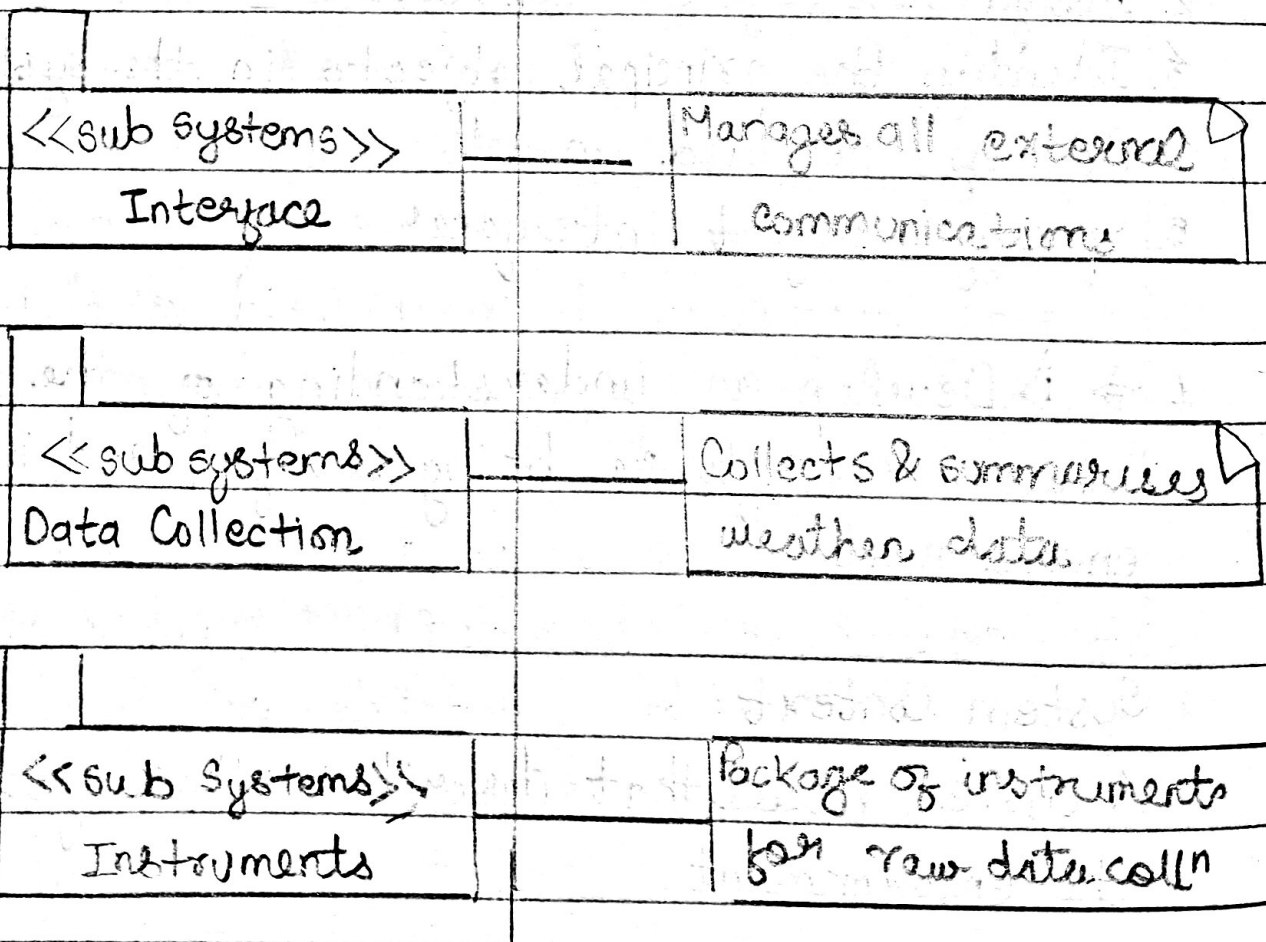 <<sub systems>>
Interface
Manages all external
communications
<<sub systems>>
Data Collection
Collects & summarises
weather data
<<sub Systems>>
Instruments
Package of instruments
for raw data collⁿ